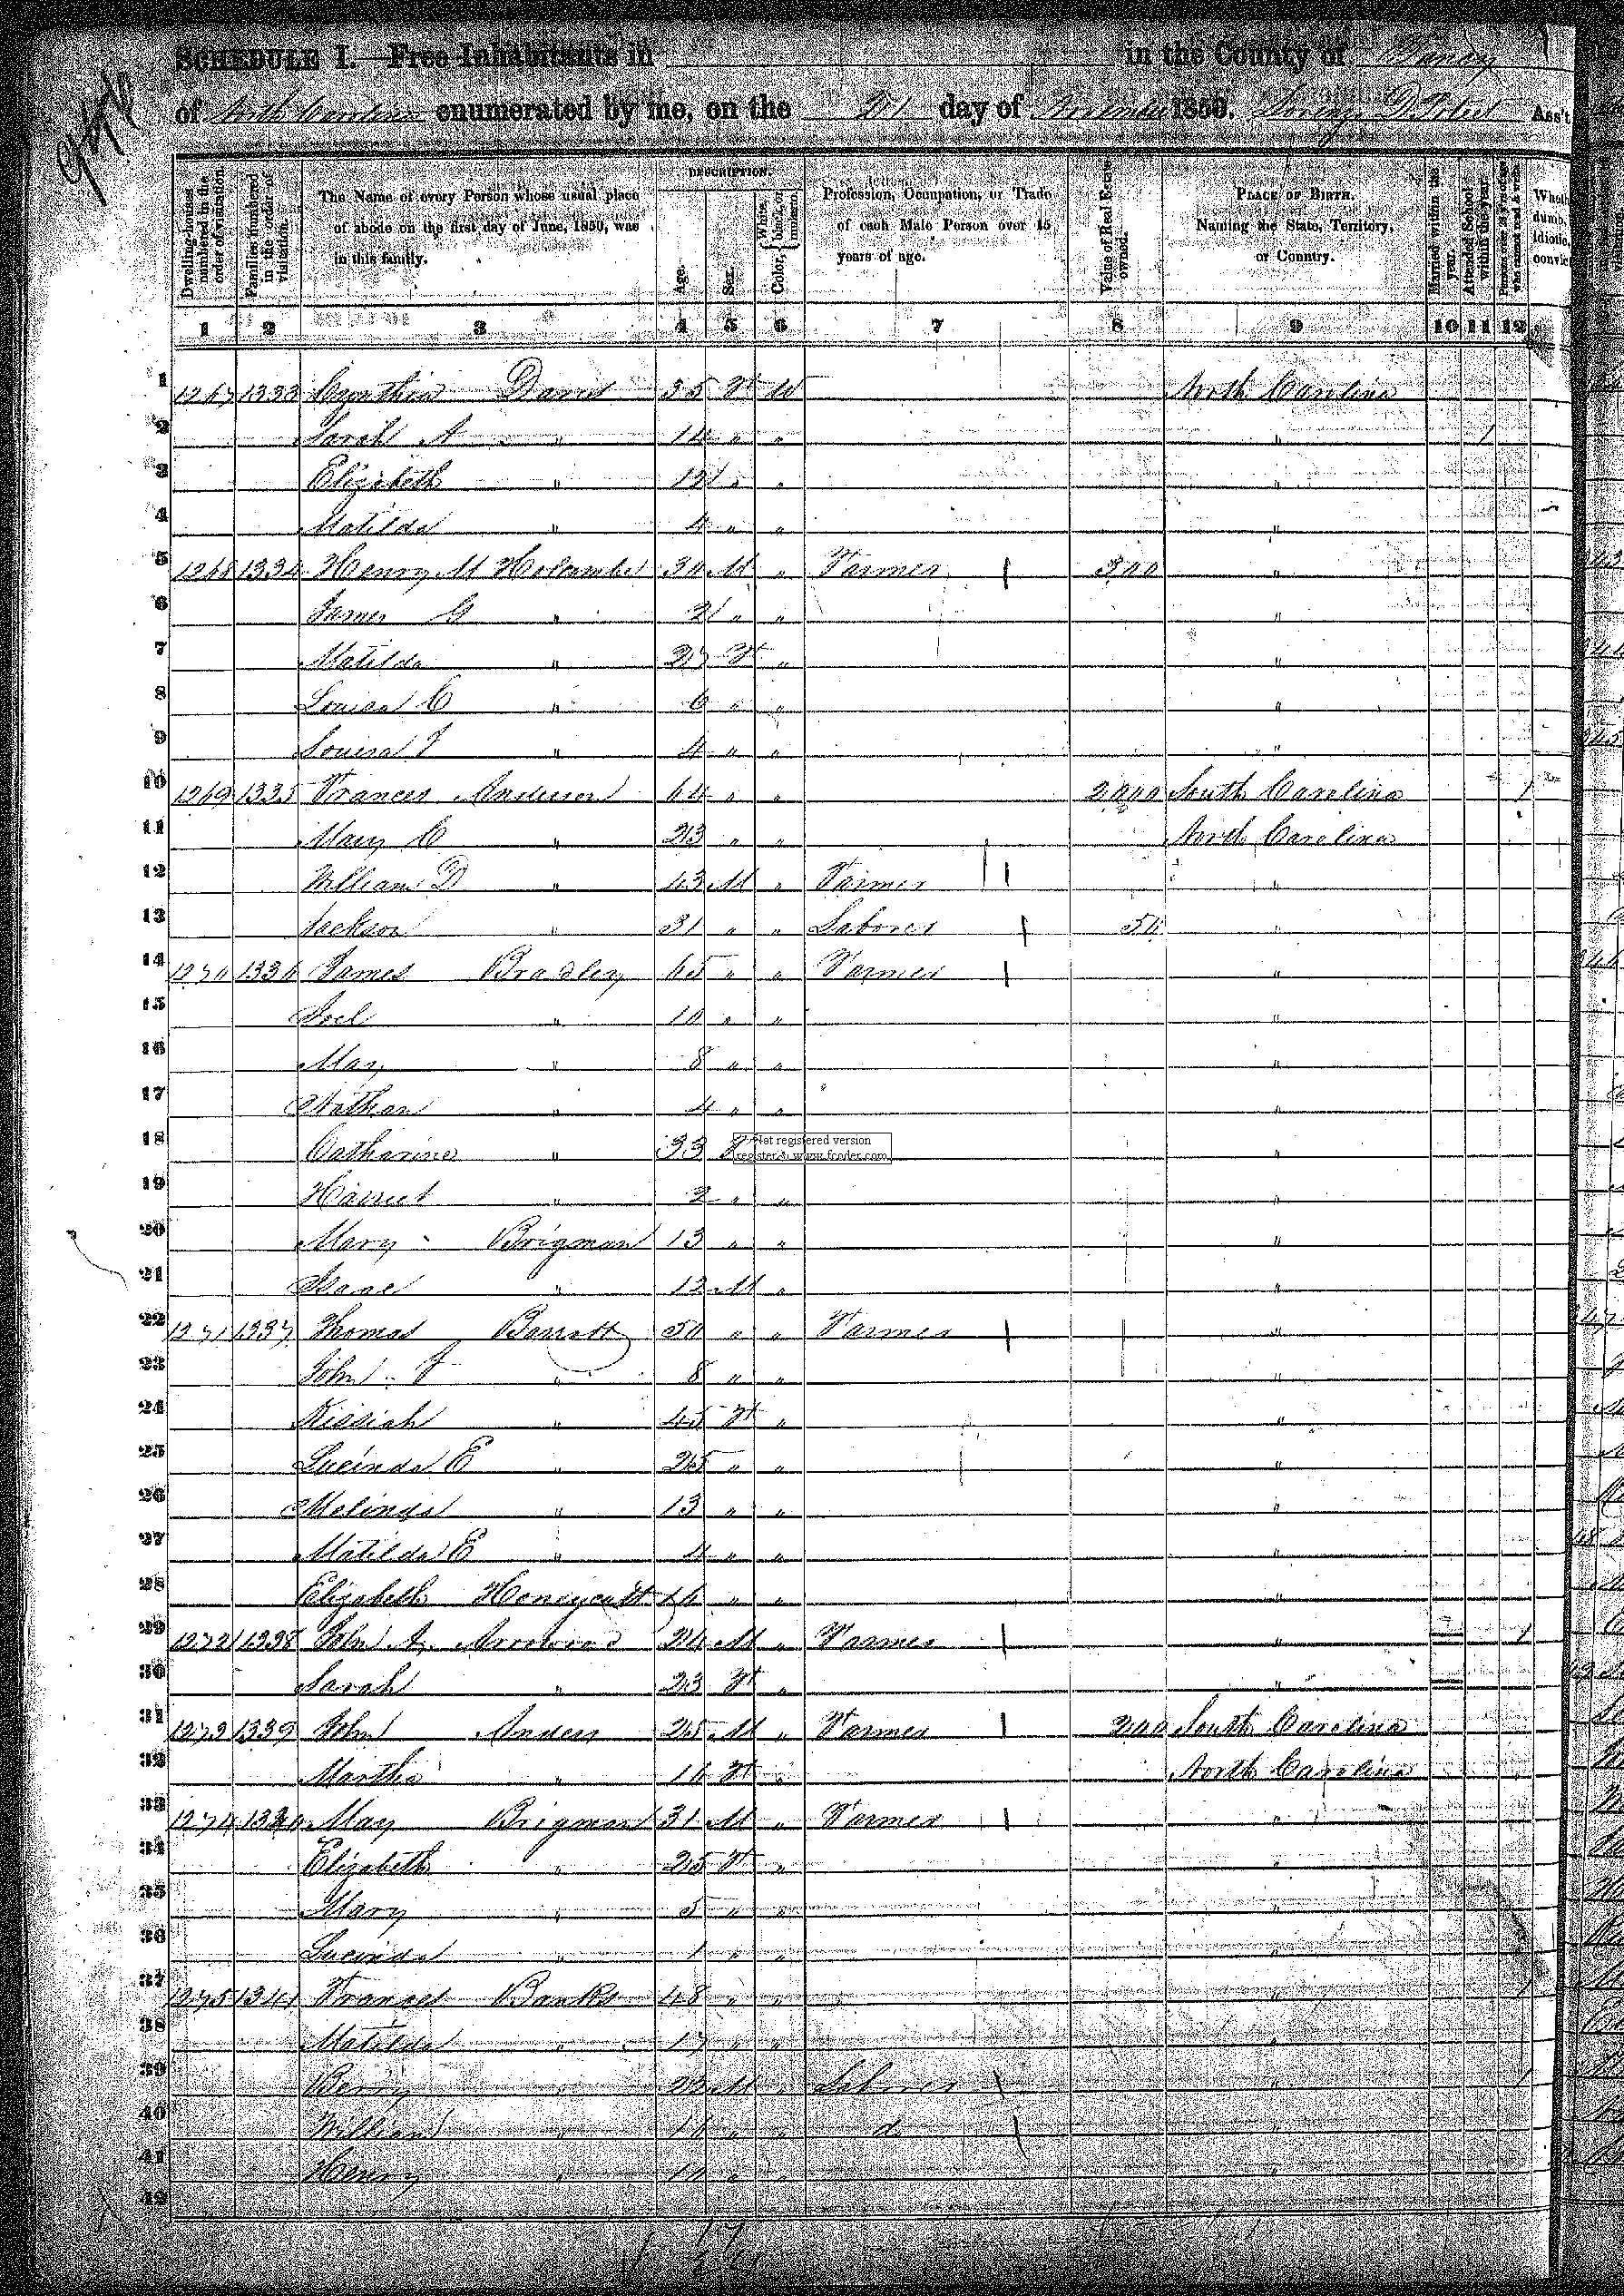 SCHEDULE I.—Free Inhabitants in in the County of Yancy
of North Carolina enumerated by me, on the 21 day of November 1850. Ass't
DESCRIPTION.
Dwelling-houses numbered in the order of visitation. Families numbered in the order of visitation. The Name of every Person whose usual place of abode on the first day of June, 1850, was in this family. Age. Sex. Color, White, black, or mulatto. Profession, Occupation, or Trade of each Male Person over 15 years of age. Value of Real Estate owned. PLACE OF BIRTH. Naming the State, Territory, or Country. Married within the year. Attended School within the year. Persons over 20 y'rs of age who cannot read & write. Wheth dumb, idiotic, convict
1 2 3 4 5 6 7 8 9 10 11 12
1 1267 1333 Cynthia Davis 35 F W North Carolina
2 Sarah A " 14 " " " 1
3 Elizabeth " 12 " " "
4 Matilda " 4 " " "
5 1268 1334 Henry M Holcombe 30 M " Farmer 300 "
6 James G " 21 " " "
7 Matilda " 27 F " "
8 Louisa C " 6 " " "
9 Louisa J " 4 " " "
10 1269 1335 Frances Anderson 64 " " 2000 South Carolina 1
11 Mary C " 23 " " North Carolina
12 William D " 43 M " Farmer "
13 Jackson " 31 " " Laborer 50 "
14 1270 1336 James Bradley 65 " " Farmer "
15 Joel " 10 " " "
16 May " 8 " " "
17 Nathan " 4 " " "
18 Catharine " 33 F "
Not registered version
register @ www.fcoder.com
19 Harriet " 2 " " "
20 Mary Brigman 13 " " "
21 Isaac " 12 M " "
22 1271 1337 Thomas Barrett 50 " " Farmer "
23 John J " 8 " " "
24 Kissiah " 45 F " "
25 Lucinda E " 25 " " "
26 Melinda " 13 " " "
27 Matilda E " 4 " " "
28 Elizabeth Honeycutt " " "
29 1272 1338 John A. Arrowood 24 M " Farmer " 1
30 Sarah " 23 F " "
31 1273 1339 John Anders 25 M " Farmer 200 South Carolina
32 Martha " 16 F " North Carolina
33 1274 1340 May Brigman 31 M " Farmer "
34 Elizabeth " 25 F " "
35 Mary " 5 " " "
36 Lucinda " 1 " " "
37 1275 1341 Frances Banks 48 " " " 1
38 Matilda " 17 " " "
39 Berry " 22 M " Laborer " 1
40 William " " " d "
41 Henry " " " "
42